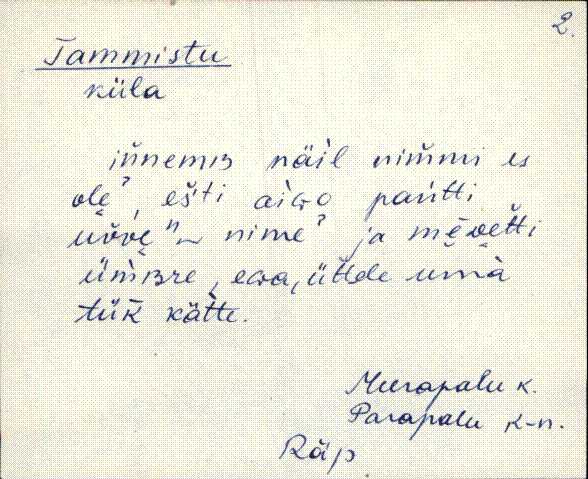 2.
Tammistu
küla
ińnemʙ näil nim̆mi es
olèˀ, ešti aìᴅo pańtti
uvvè nimeˀ ja mèᴅet̆ti
üm̆ʙre, eᴅa, üt̆tde umà
tük̆ kät̀te.
Meerapalu k.
Parapalu k-n.
Räp